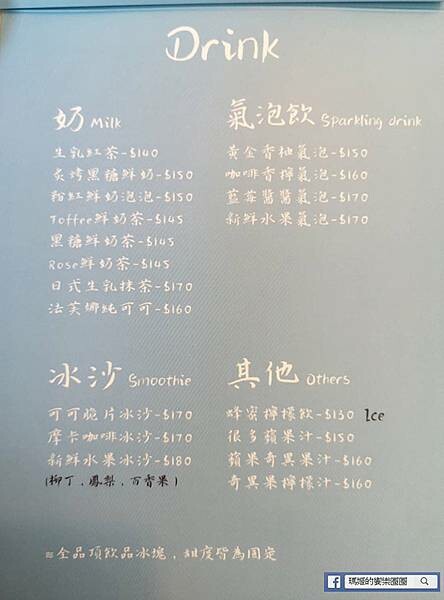 Drink
奶 Milk
生乳紅茶-$140
炙烤黑糖鮮奶-$150
粉紅鮮奶泡泡-$150
Toffee鮮奶茶-$145
黑糖鮮奶茶-$145
Rose鮮奶茶-$145
日式生乳抹茶-$170
法芙娜純可可-$160
氣泡飲 Sparkling drink
黃金香柚氣泡-$150
咖啡香檸氣泡-$160
藍莓醬醬氣泡-$170
新鮮水果氣泡-$170
冰沙 Smoothie
可可脆片冰沙-$170
摩卡咖啡冰沙-$170
新鮮水果冰沙-$180
(柳丁，鳳梨，百香果)
其他 Others
蜂蜜檸檬飲-$130 Ice
很多蘋果汁-$150
蘋果奇異果汁-$160
奇異果檸檬汁-$160
※全品項飲品冰塊，甜度皆為固定
瑪姬的饗樂圈圈